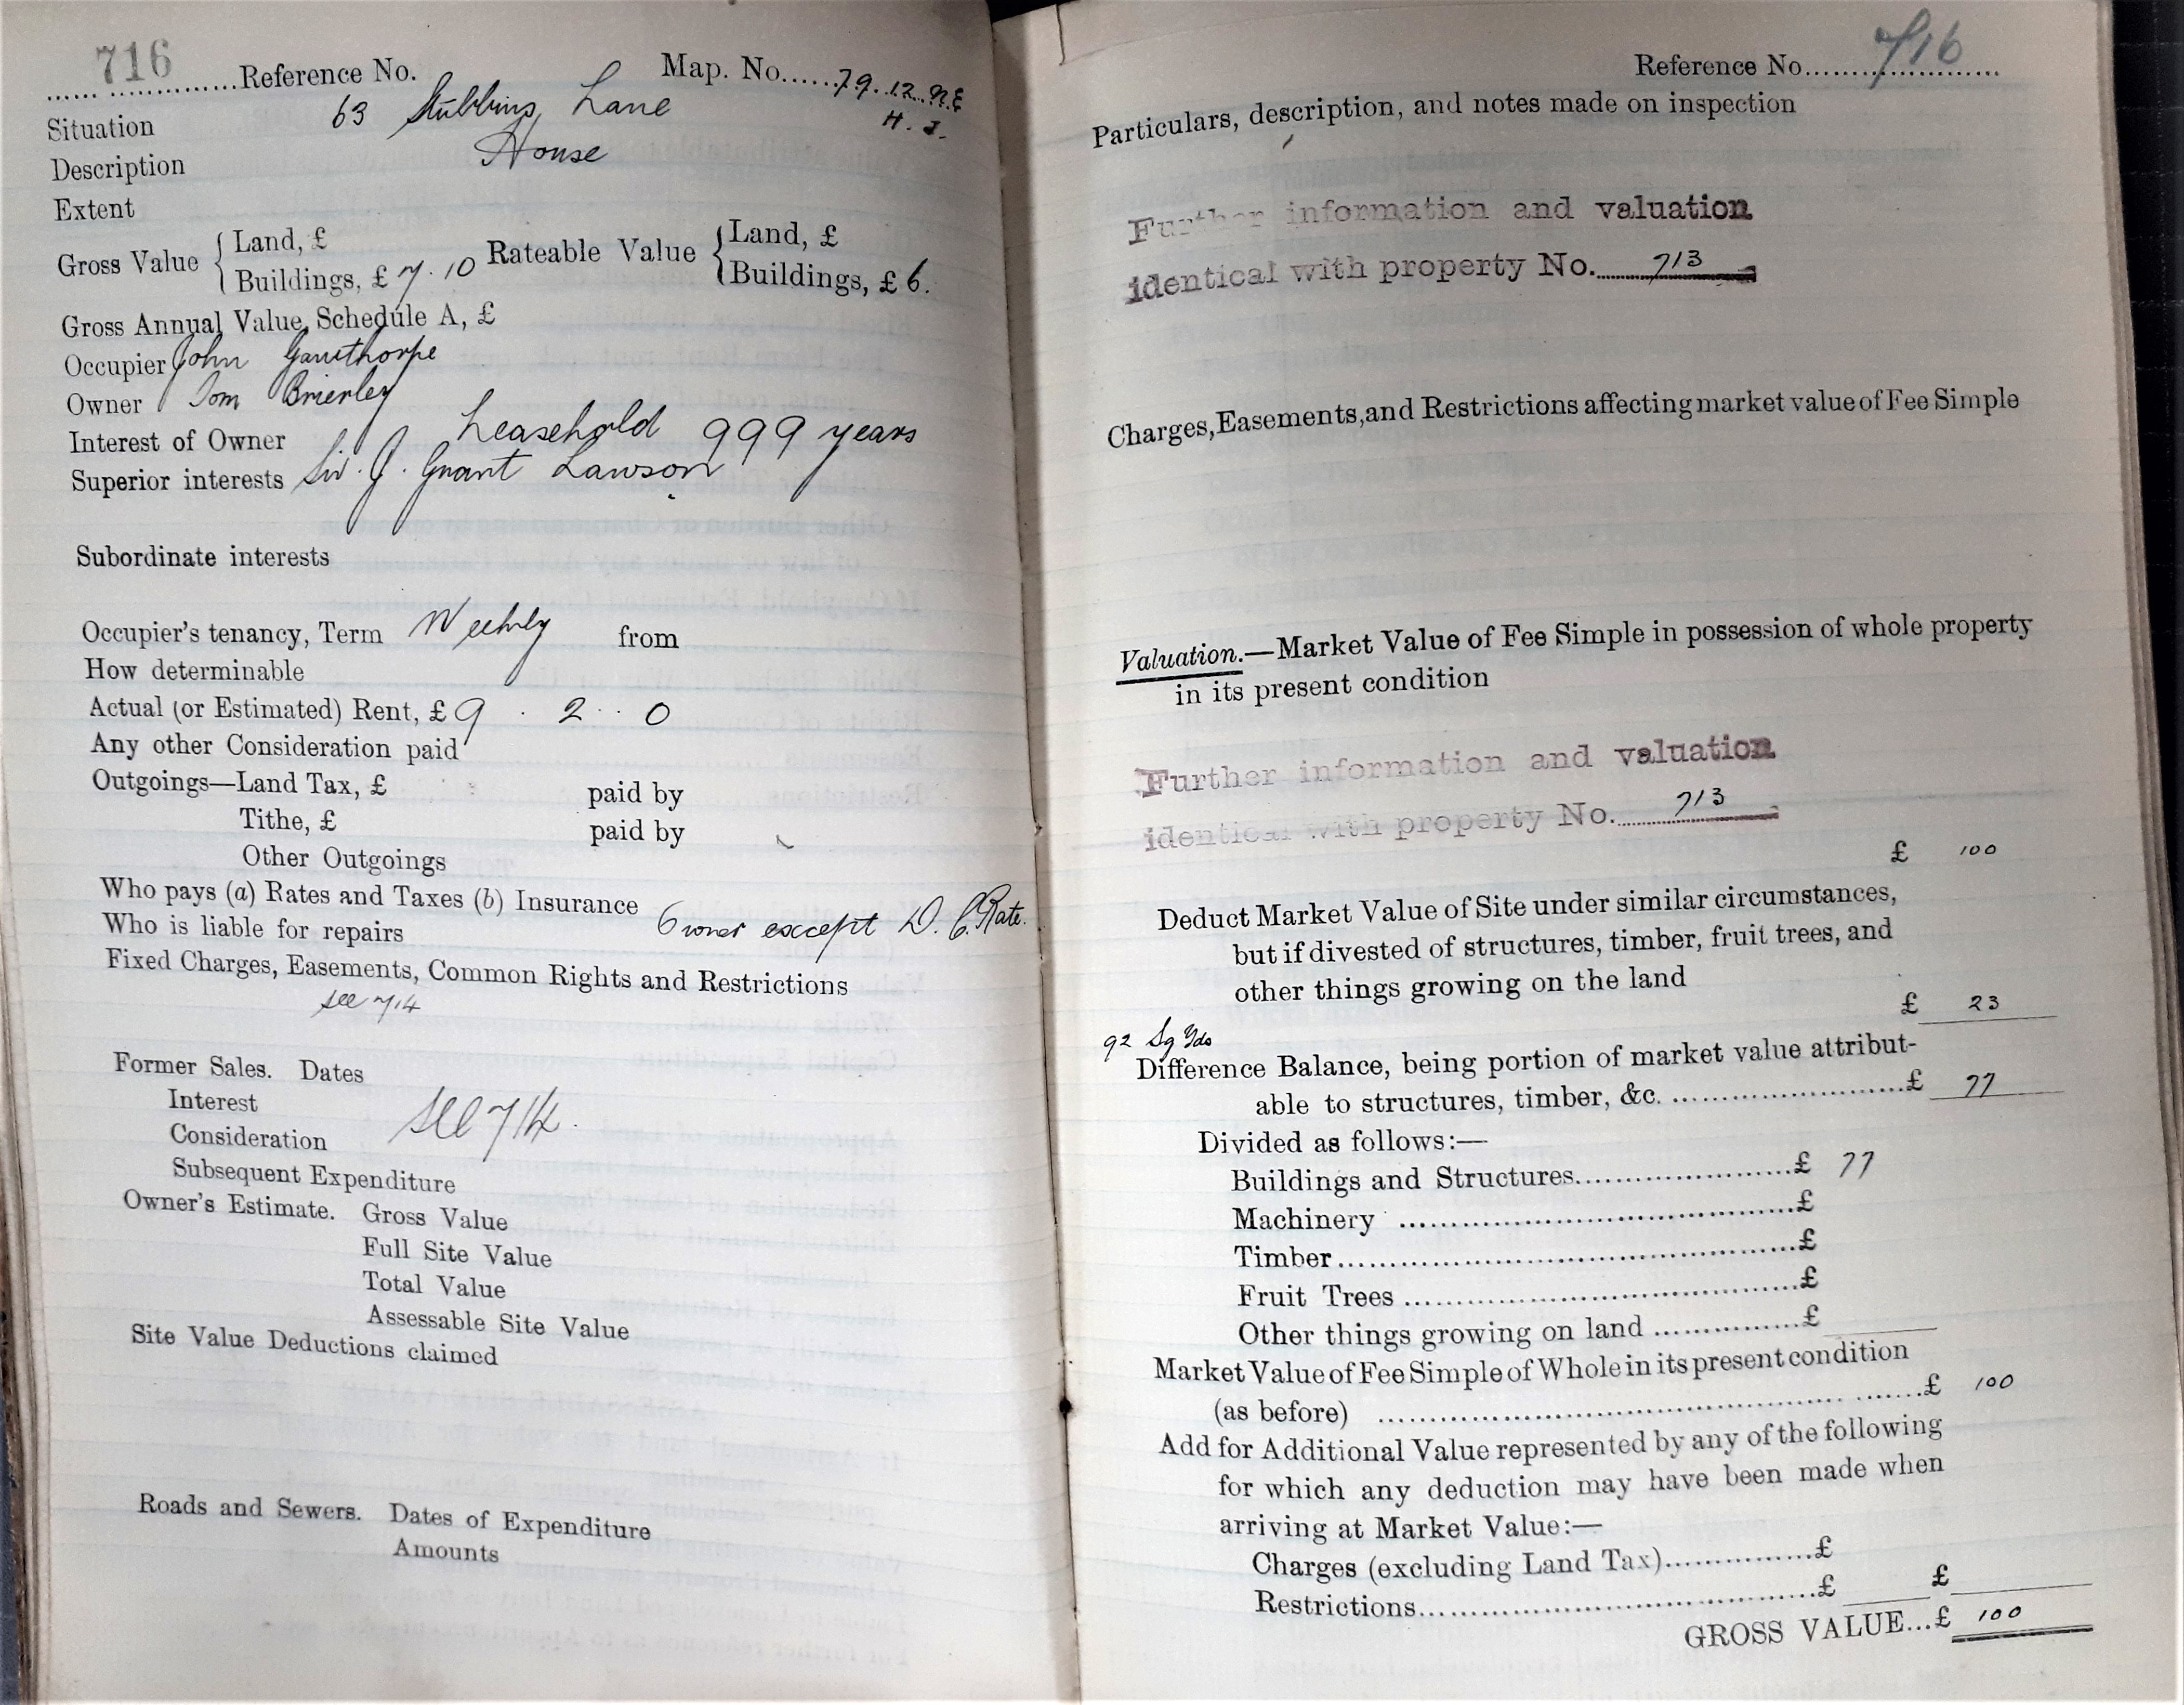 716 Reference No. Map. No. 79.12.N.E
H. J.
Situation 63 Stubbins Lane
Description House
Extent
Gross Value { Land, £
Buildings, £ 7.10
Rateable Value { Land, £
Buildings, £ 6.
Gross Annual Value, Schedule A, £
Occupier John Gawthorpe
Owner Tom Brierley
Interest of Owner Leasehold 999 years
Superior interests Sir. J. Grant Lawson
Subordinate interests
Occupier's tenancy, Term Weekly from
How determinable
Actual (or Estimated) Rent, £ 9 . 2 . 0
Any other Consideration paid
Outgoings—Land Tax, £ paid by
Tithe, £ paid by
Other Outgoings
Who pays (a) Rates and Taxes (b) Insurance
Who is liable for repairs Owner except D. C. Rate.
Fixed Charges, Easements, Common Rights and Restrictions
see 714
Former Sales. Dates
Interest
Consideration see 714.
Subsequent Expenditure
Owner's Estimate. Gross Value
Full Site Value
Total Value
Assessable Site Value
Site Value Deductions claimed
Roads and Sewers. Dates of Expenditure
Amounts
Reference No. 716
Particulars, description, and notes made on inspection
Further information and valuation
identical with property No. 713
Charges, Easements, and Restrictions affecting market value of Fee Simple
Valuation.—Market Value of Fee Simple in possession of whole property
in its present condition
Further information and valuation
identical with property No. 713
£ 100
Deduct Market Value of Site under similar circumstances,
but if divested of structures, timber, fruit trees, and
other things growing on the land
£ 23
92 Sq Yds
Difference Balance, being portion of market value attribut-
able to structures, timber, &c. £ 77
Divided as follows:—
Buildings and Structures £ 77
Machinery £
Timber £
Fruit Trees £
Other things growing on land £
Market Value of Fee Simple of Whole in its present condition
(as before) £ 100
Add for Additional Value represented by any of the following
for which any deduction may have been made when
arriving at Market Value:—
Charges (excluding Land Tax) £
Restrictions £ £
GROSS VALUE...£ 100